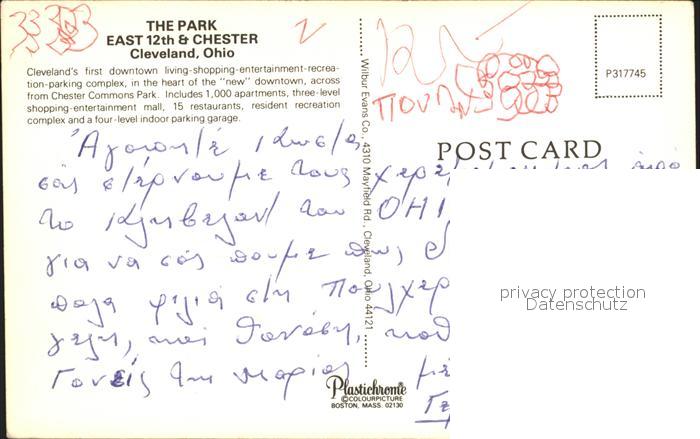 THE PARK
EAST 12th & CHESTER
Cleveland, Ohio
Cleveland's first downtown living-shopping-entertainment-recrea-
tion-parking complex, in the heart of the "new" downtown, across
from Chester Commons Park. Includes 1,000 apartments, three-level
shopping-entertainment mall, 15 restaurants, resident recreation
complex and a four-level indoor parking garage.
P317745
POST CARD
Wilbur Evans Co., 4310 Mayfield Rd., Cleveland, Ohio 44121
Ἀγαπητέ Κώστα
σάς στέρνουμε τους χερε
το Κλήβελαντ του OHI
για να σάς πούμε πως
φιλιά στη Πουλχερ
και Θανάση, καθ
Γονείς της Μαρίας με
Plastichrome®
©COLOURPICTURE
BOSTON, MASS. 02130
privacy protection
Datenschutz